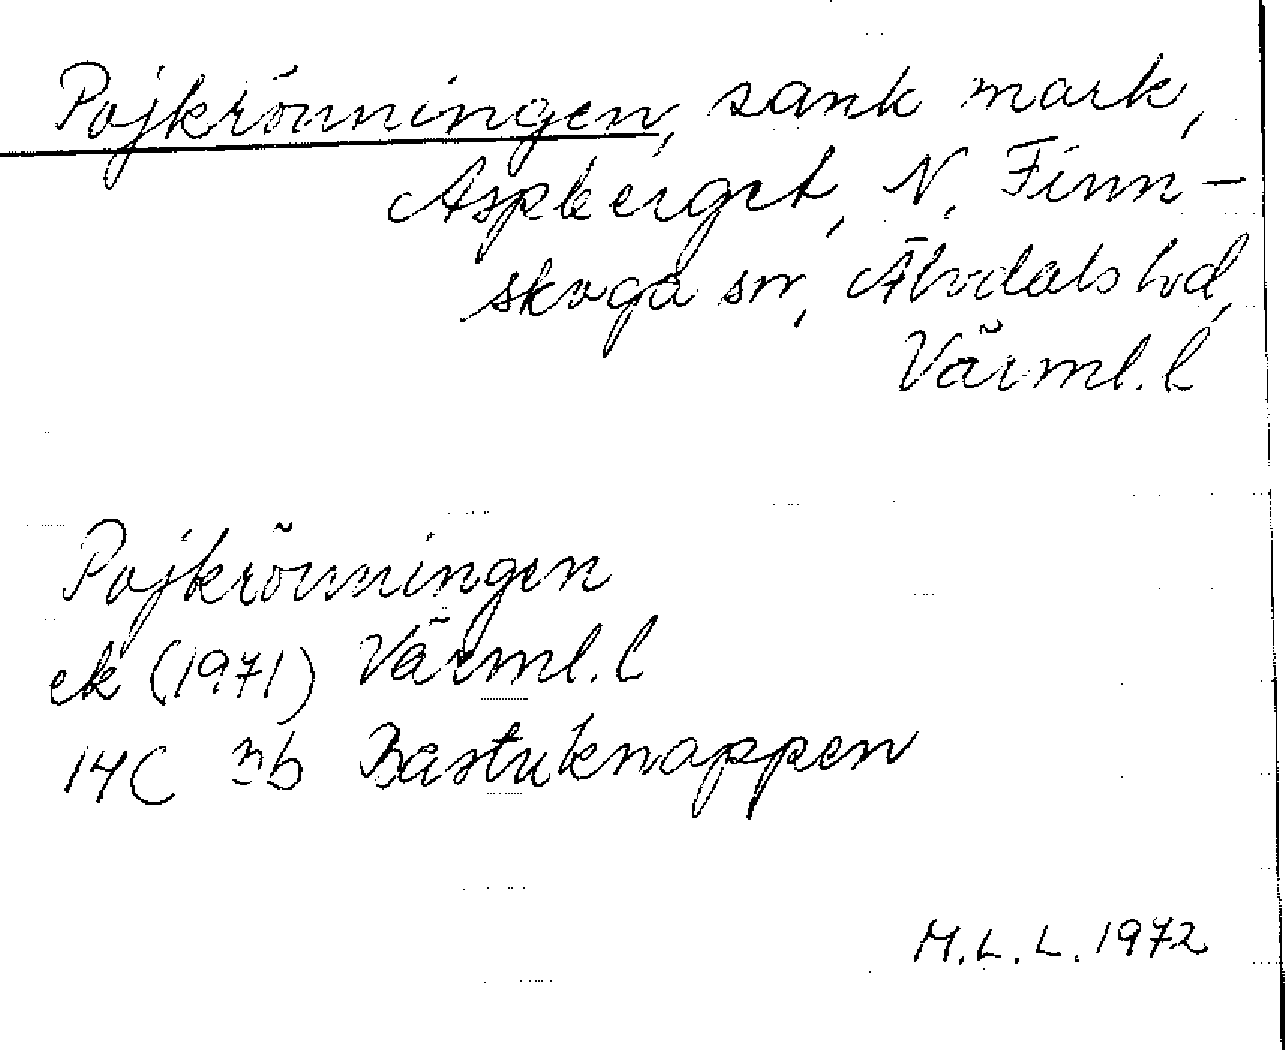 Pojkrönningen, sank mark,
Aspberget, N. Finn-
skoga sn, Älvdals hd,
Värml. l
Pojkrönningen
ek (1971) Värml. l
14C 3b Bastuknappen
M.L.L. 1972